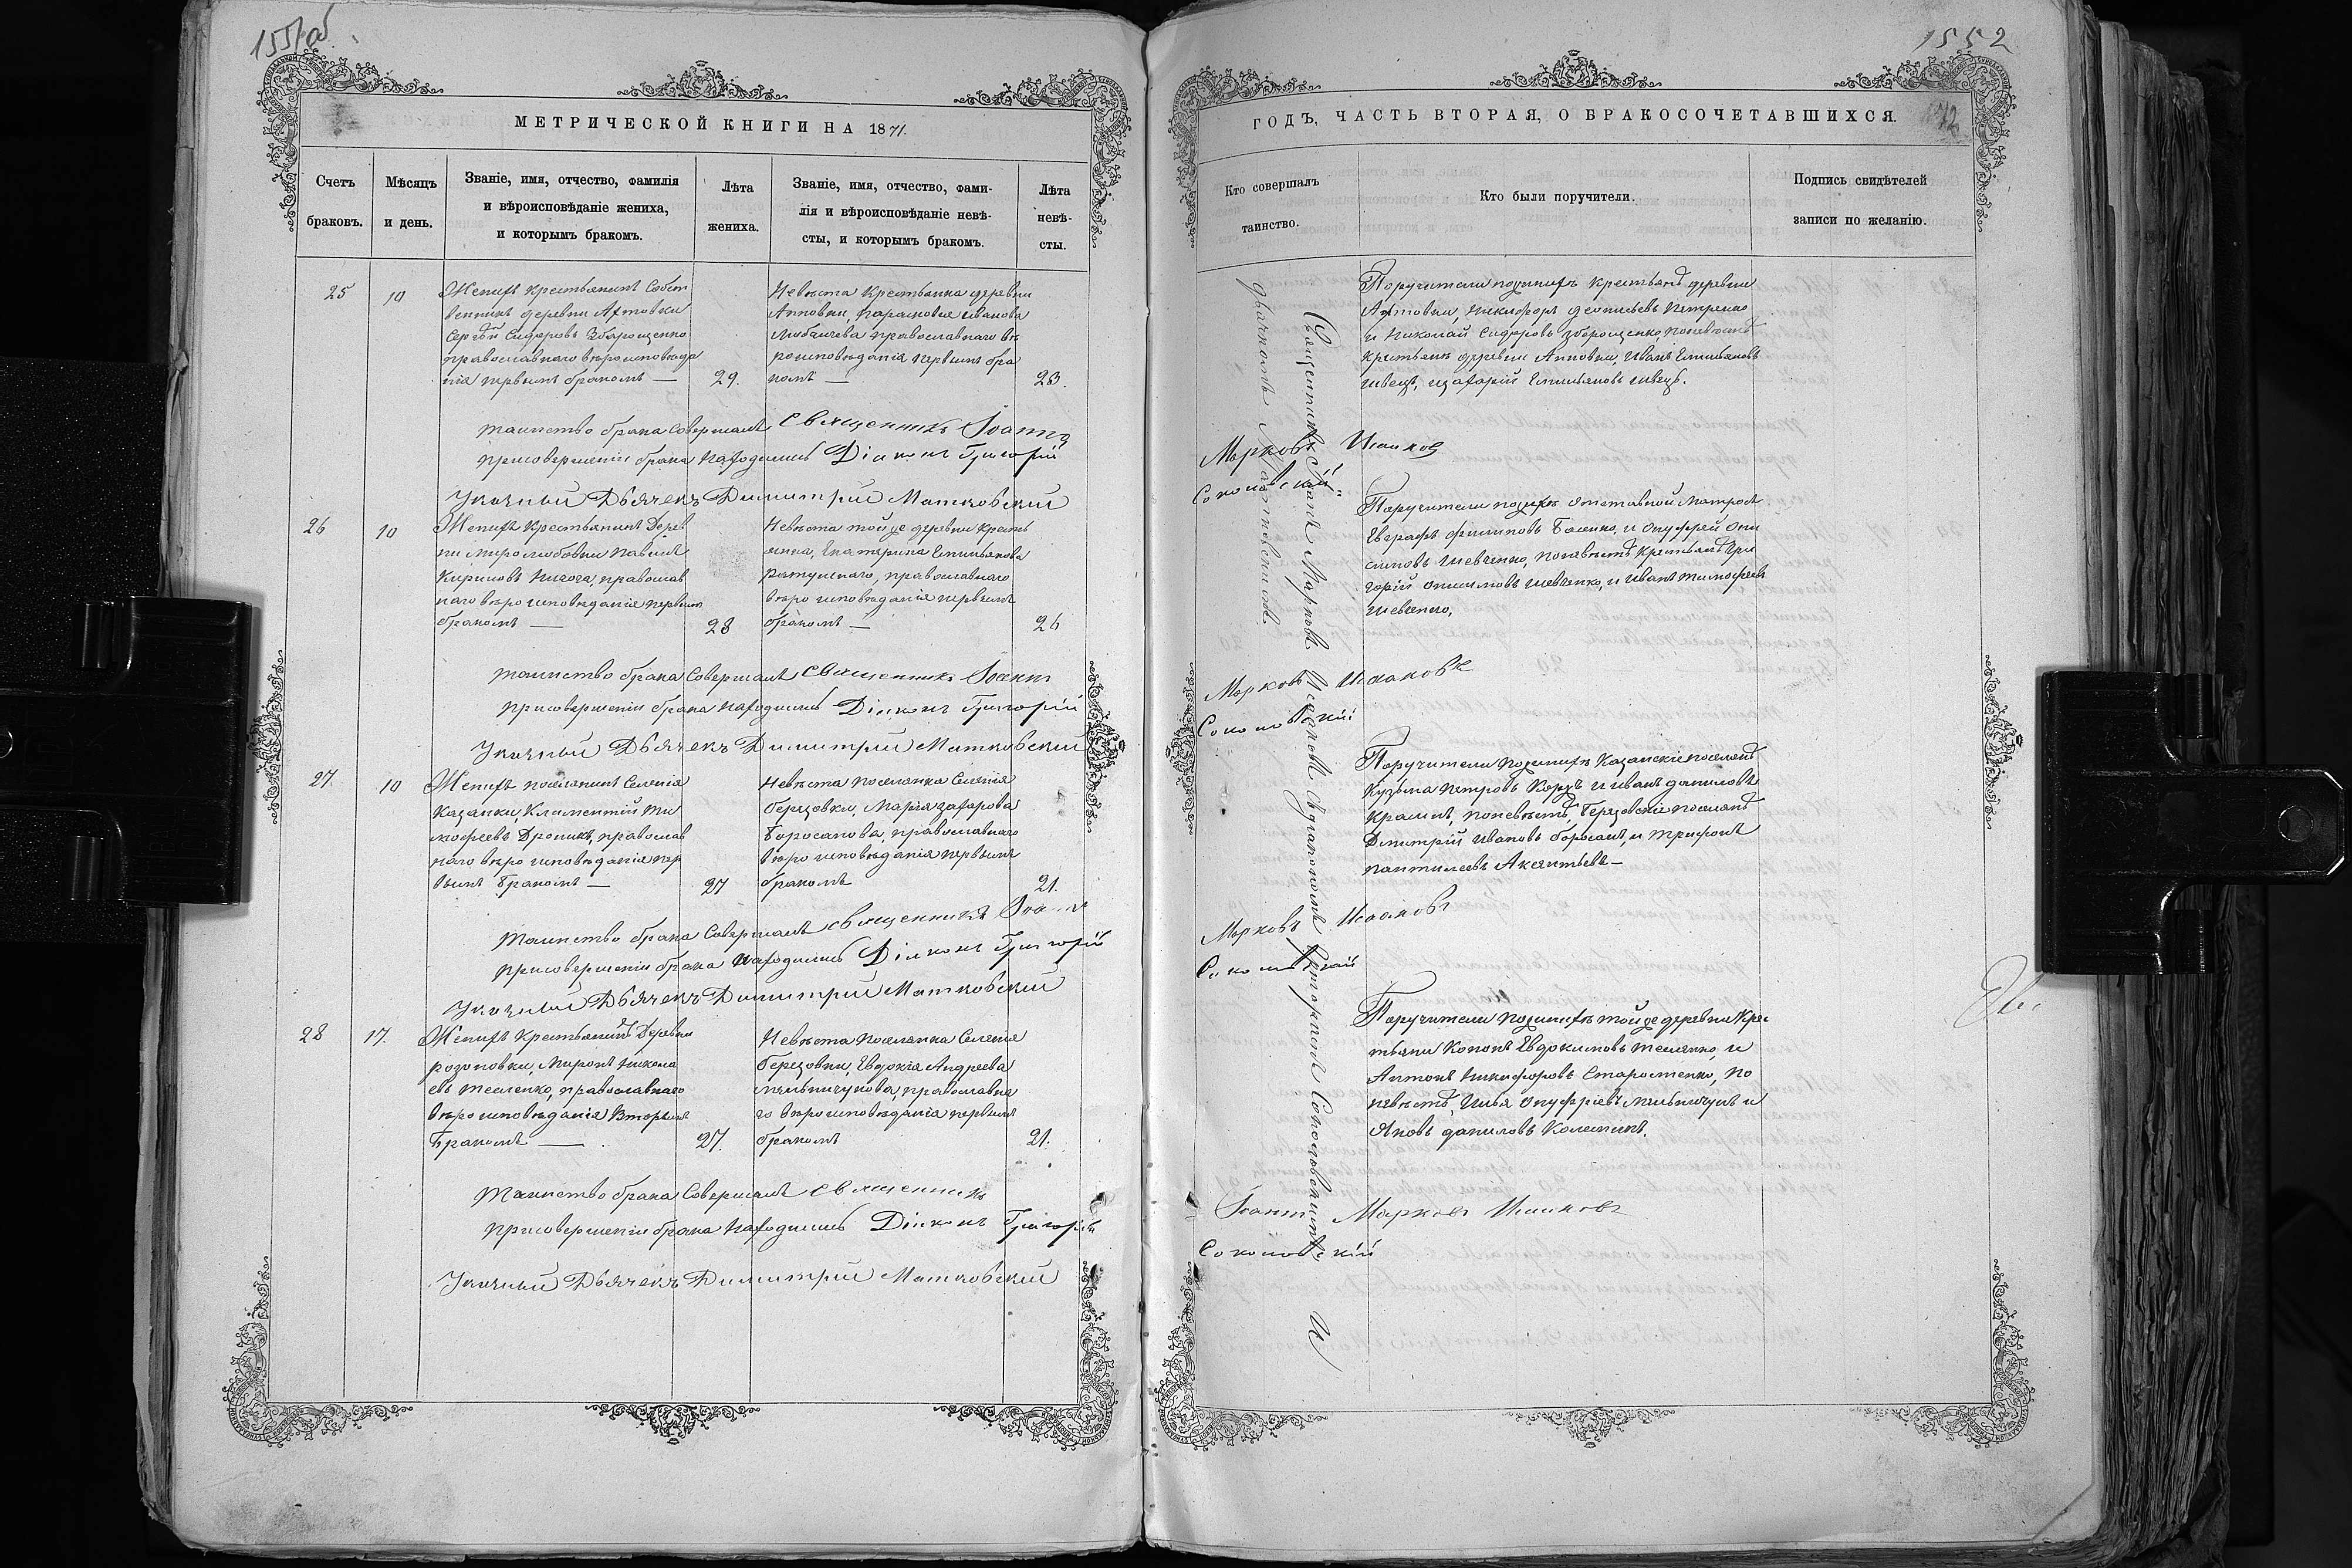 1551об.
МЕТРИЧЕСКОЙ КНИГИ НА 1871.
Счетъ браковъ.
Мѣсяцъ и день.
Званіе, имя, отчество, фамилія
и вѣроисповѣданіе жениха,
и которымъ бракомъ.
Лѣта жениха.
Званіе, имя, отчество, фами-
лія и вѣроисповѣданіе невѣ-
сты, и которымъ бракомъ.
Лѣта невѣ-
сты.
25
10
Женихъ крестьянинъ Собст
венникъ деревни Ахтовки
Сергѣй Сидоровъ Зброщенко
православнаго вѣроисповѣда
нія первымъ бракомъ —
29.
Невѣста крестьянка деревни
Анновки, Парасковія Иванова
православнаго вѣ
роисповѣданія первымъ бра
комъ —
23.
Таинство брака совершалъ Священникъ Іоаннъ
при совершеніи брака находились Діаконъ Григорій
Указный Дьячекъ Димитрій Матковскій
26
10
Женихъ крестьянинъ Дерев
ни Миролюбовки Павелъ
Кириловъ православ
наго вѣроисповѣданія первымъ
бракомъ —
28
Невѣста той же деревни кресть
янка, Екатерина Емильянова
православнаго
вѣроисповѣданія первымъ
бракомъ —
26
Таинство брака совершалъ Священникъ Іоаннъ
при совершеніи брака находились Діаконъ Григорій
Указный Дьячекъ Димитрій Матковскій
27
10
Женихъ поселянинъ Селенія
Казанки, Климентій Ти
мофеевъ православ
наго вѣроисповѣданія пер
вымъ бракомъ —
27
Невѣста поселянка Селенія
Березовки, Марія Захарова
православнаго
вѣроисповѣданія первымъ
бракомъ
21.
Таинство брака совершалъ Священникъ Іоаннъ
при совершеніи брака находились Діаконъ Григорій
Указный Дьячекъ Димитрій Матковскій
28
17.
Женихъ крестьянинъ Деревни
Розоновки, Миронъ Никола
евъ Теленко, православнаго
вѣроисповѣданія Вторымъ
бракомъ —
27.
Невѣста поселянка Селенія
Березовки, Евдокія Андреева
Мельничукова, православна
го вѣроисповѣданія первымъ
бракомъ
21.
Таинство брака совершалъ Священникъ
при совершеніи брака находились Діаконъ Григорій
Указный Дьячекъ Димитрій Матковскій
1552
ГОДЪ, ЧАСТЬ ВТОРАЯ, О БРАКОСОЧЕТАВШИХСЯ.
Кто совершалъ
таинство.
Кто были поручители.
Подпись свидѣтелей
записи по желанію.
Священникъ Іоаннъ Марковъ Исааковъ съ діакономъ Григоріемъ Соколовскимъ и
дьячкомъ Матковскимъ.
Поручители по женихѣ крестьяне деревни
Ахтовки, Никифоръ Петренко
и Николай Сидоровъ Зброщенко, по невѣстѣ
крестьяне деревни Анновки, Иванъ Емильяновъ
Швецъ, и Захарій Емильяновъ Швецъ.
Марковъ Исааковъ
Соколовскій
Поручители по женихѣ отставной Матросъ
Евграфъ Филиповъ и Онуфрій Они
симовъ Шевченко, по невѣстѣ крестьяне Гри
горій Онисимовъ Шевченко, и Иванъ Тимофѣевъ
Шевченко,
Марковъ Исааковъ
Соколовскій
Поручители по женихѣ Казанскіе поселяне
Кузьма Петровъ Коржъ и Иванъ Даниловъ
по невѣстѣ, Березовскіе поселяне
Дмитрій Ивановъ и Трифонъ
Пантилеевъ Аксентьевъ —
Марковъ Исааковъ
Соколовскій
Поручители по женихѣ той же деревни Кре
стьяни Кононъ Евдокимовъ Теленко, и
Антонъ Никифоровъ Старостенко, по
невѣстѣ, Илья Онуфріевъ Мельничукъ и
Яковъ Даниловъ
Іоаннъ Марковъ Исааковъ
Соколовскій